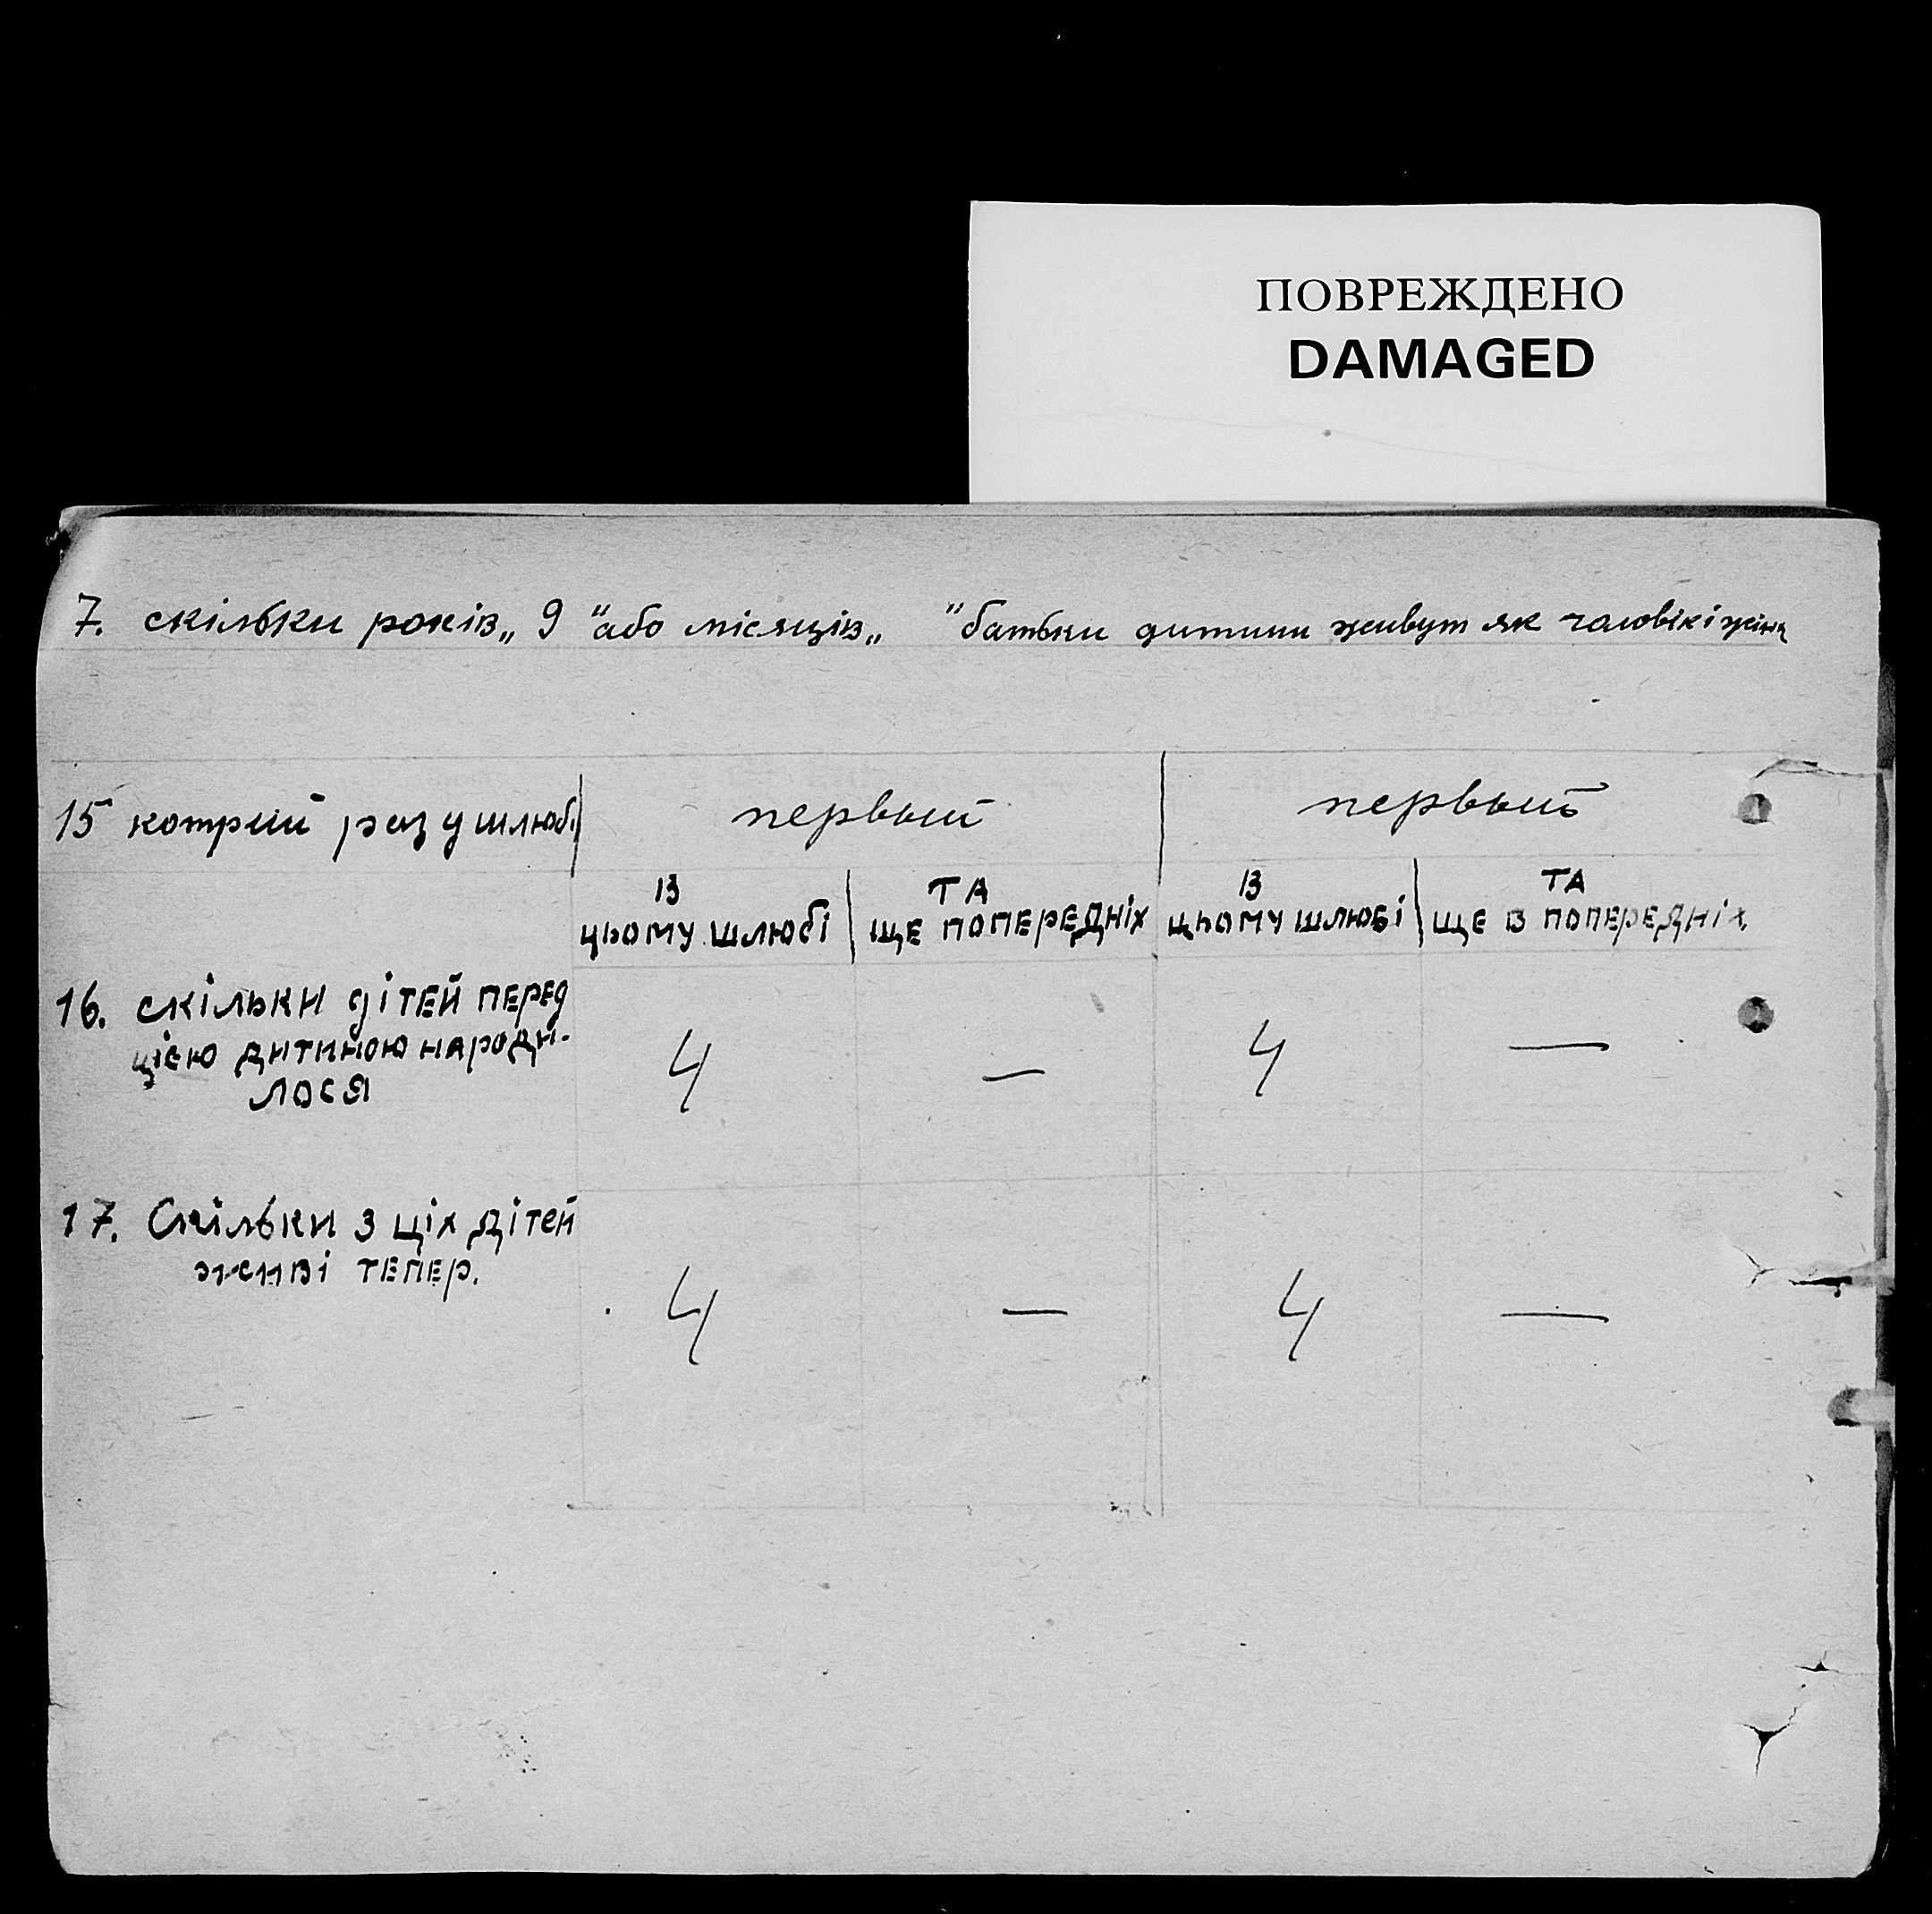 ПОВРЕЖДЕНО
DAMAGED
7. скільки років „ 9 " або місяців „ " батьки дитини живут як чоловік і жінка
15 котрий раз у шлюбі первый первый
В ТА В ТА
цьому шлюбі ще попередніх цьому шлюбі ще в попередніх
16. скільки дітей перед
цією дитиною народи-
лося
4 — 4 —
17. Скільки з ціх дітей
живі тепер.
4 — 4 —